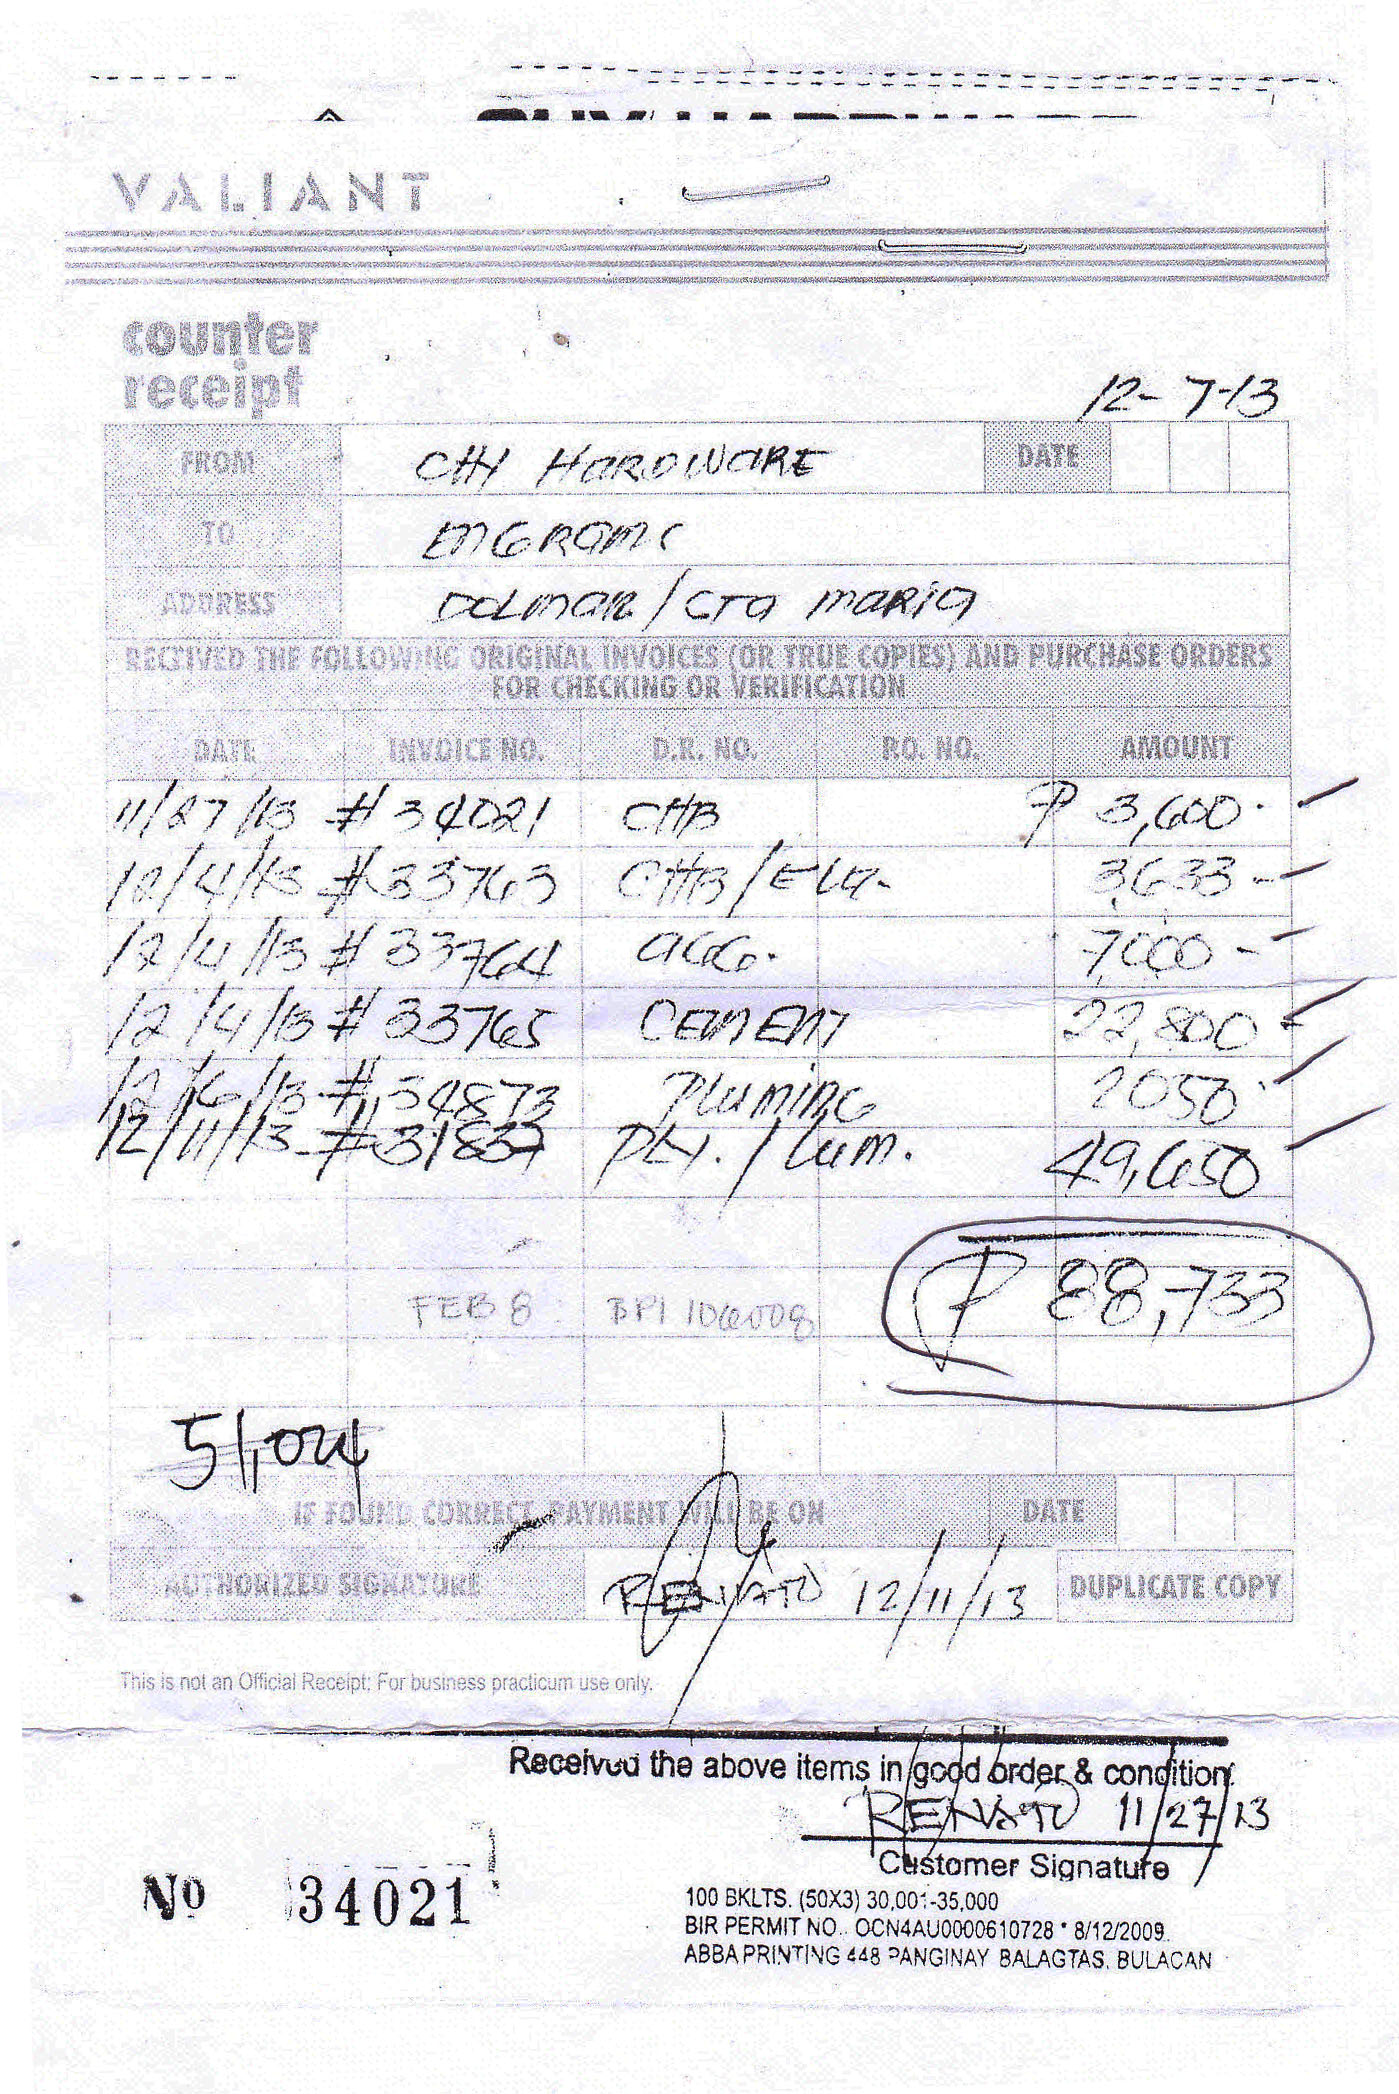 VALIANT
counter
receipt
12-7-13
FROM CHY HARDWARE DATE
TO ENGRAMS
ADDRESS DOLMAR/STA MARIA
RECEIVED THE FOLLOWING ORIGINAL INVOICES (OR TRUE COPIES) AND PURCHASE ORDERS
FOR CHECKING OR VERIFICATION
DATE INVOICE NO. D.R. NO. P.O. NO. AMOUNT
11/27/13 #34021 CHB ₱ 3,600.-
12/4/13 #33763 CHB/ 3,633-
12/4/13 #33764 AGG. 7,000-
12/4/13 #33765 CEMENT 22,800-
12/6/13 #34873 PLUMING 2050.
12/11/13 PLY./Lum. 49,650
₱ 88,733
FEB 8 BPI
51,024
IF FOUND CORRECT, PAYMENT WILL BE ON DATE
AUTHORIZED SIGNATURE RENATO 12/11/13 DUPLICATE COPY
This is not an Official Receipt: For business practicum use only.
Received the above items in good order & condition.
RENATO 11/27/13
Customer Signature
No 34021
100 BKLTS. (50X3) 30,001-35,000
BIR PERMIT NO.. OCN4AU0000610728 * 8/12/2009.
ABBA PRINTING 448 PANGINAY BALAGTAS, BULACAN